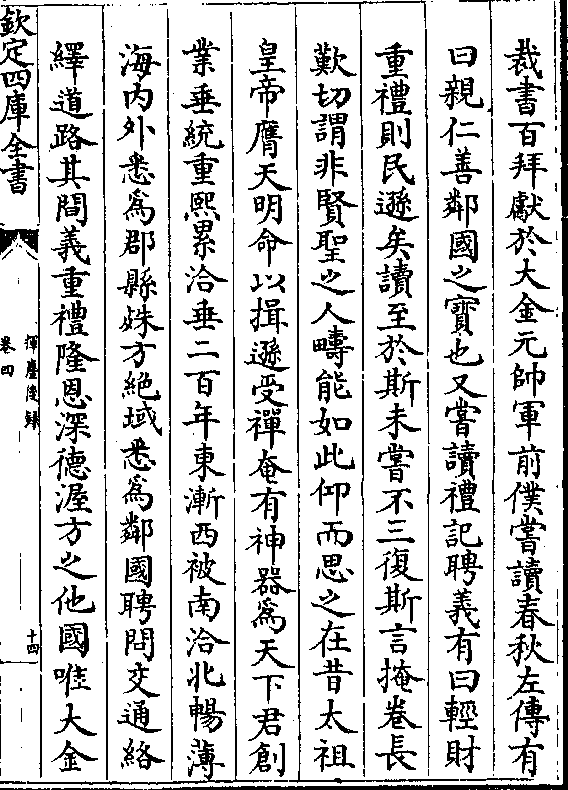 裁書百拜獻於大金元帥軍前僕嘗讀春秋左傳有
曰親仁善鄰國之寶也又嘗讀禮記聘義有曰輕財
重禮則民遜矣讀至於斯未嘗不三復斯言掩卷長
歎切謂非賢聖之人疇能如此仰而思之在昔太祖
皇帝膺天明命以揖遜受禪奄有神器為天下君創
業垂統重熙累洽垂二百年東漸西被南洽北暢薄
海內外悉為郡縣姝方絕域悉為鄰國聘問交通絡
繹道路其間義重禮隆恩深德渥方之他國唯大金
欽定四庫全書
揮麈後録
卷四
十四